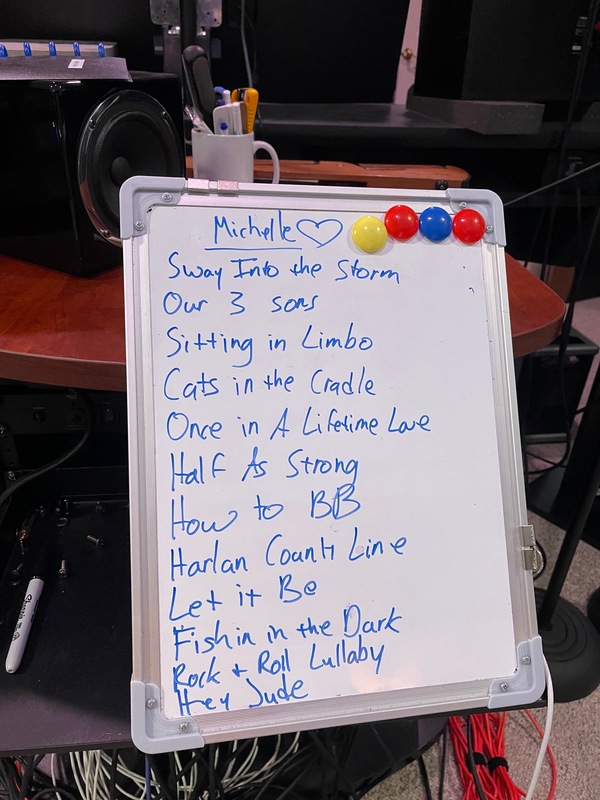 Michelle♡
Sway Into the Storm
Our 3 sons
Sitting in Limbo
Cats in the Cradle
Once in A Lifetime Love
Half As Strong
How to BB
Harlan County Line
Let it Be
Fishin in the Dark
Rock + Roll Lullaby
Hey Jude